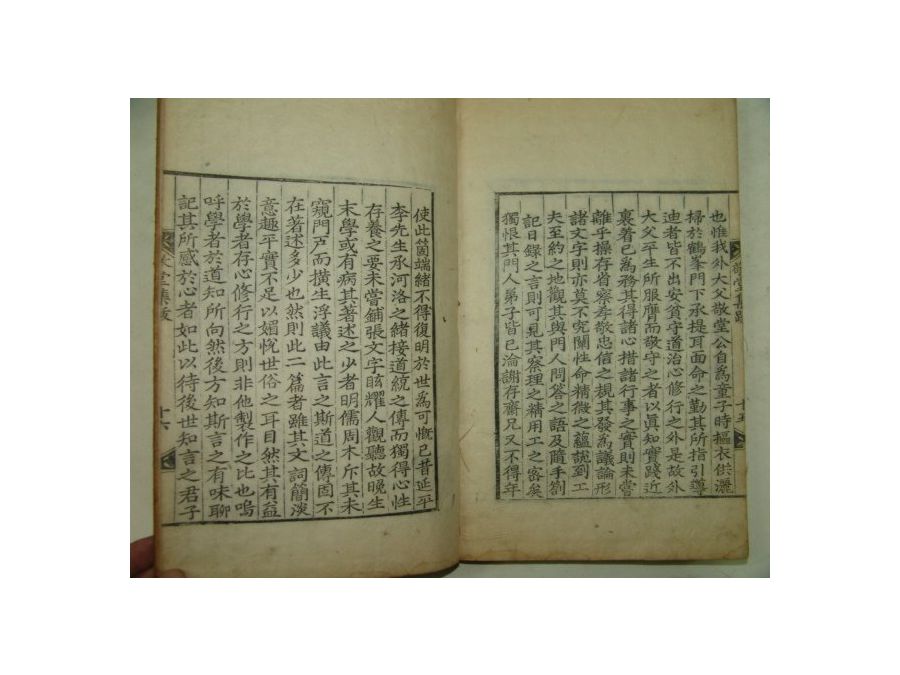 也惟我外大父敬堂公自爲童子時摳衣供灑
掃於鶴峯門下承提耳面命之勤其所指引導
迪者皆不出安貧守道治心修行之外是故外
大父平生所服膺而敬守之者以眞知實踐近
裏着己爲務其得諸心措諸行事之實則未嘗
離乎操存省察孝敬忠信之規其發爲議論形
諸文字則亦莫不究闡性命精微之蘊說到工
夫至約之地觀其與門人問答之語及隨手劄
記日錄之言則可見其察理之精用工之密矣
獨恨其門人弟子皆已淪謝存齋兄又不得年
敬堂集跋
十五
使此箇端緒不得復明於世爲可慨已昔延平
李先生承河洛之緒接道統之傳而獨得心性
存養之要未嘗鋪張文字眩耀人觀聽故晚生
末學或有病其著述之少者明儒周木斥其未
窺門戶而橫生浮議由此言之斯道之傳固不
在著述多少也然則此二篇者雖其文詞簡淡
意趣平實不足以媚悅世俗之耳目然其有益
於學者存心修行之方則非他製作之比也嗚
呼學者於道知所向然後方知斯言之有味聊
記其所感於心者如此以待後世知言之君子
堂集跋
十六